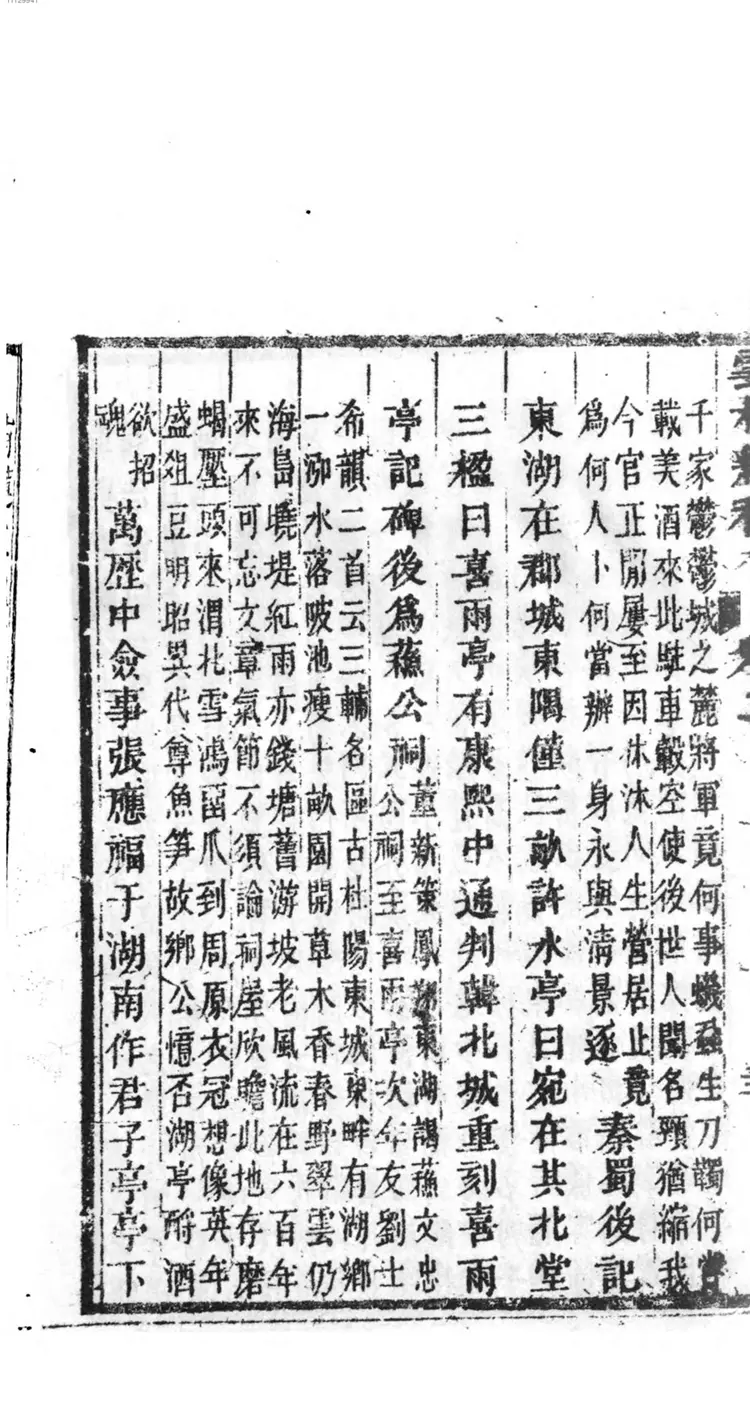 千家鬱鬱城之麓將軍竟何事蟣蝨生刀韣何嘗
載美酒來此駐車轂空使後世人聞名頸猶縮我
今官正閒屢至因休沐人生營居止竟
爲何人卜何當辦一身永與清景逐
秦蜀後記
東湖在郡城東隅僅三畝許水亭曰宛在其北堂
三楹曰喜雨亭有康熙中通判韓北城重刻喜雨
亭記碑後爲蘓公祠
董新策鳳翔東湖謁蘓文忠
公祠至喜雨亭次年友劉士
希韻二首云三輔名區古杜陽東城東畔有湖鄉
一泖水落陂池瘦十畝園開草木香春野翠雲仍
海島堯堤紅雨亦錢塘舊游坡老風流在六百年
來不可忘文章氣節不須論祠屋欣瞻此地存磨
蝎壓頭來渭北雪鴻畱爪到周原衣冠想像英年
盛俎豆明昭異代尊魚笋故鄉公憶否湖亭酹酒
欲招
魂
萬歷中僉事張應福于湖南作君子亭亭下